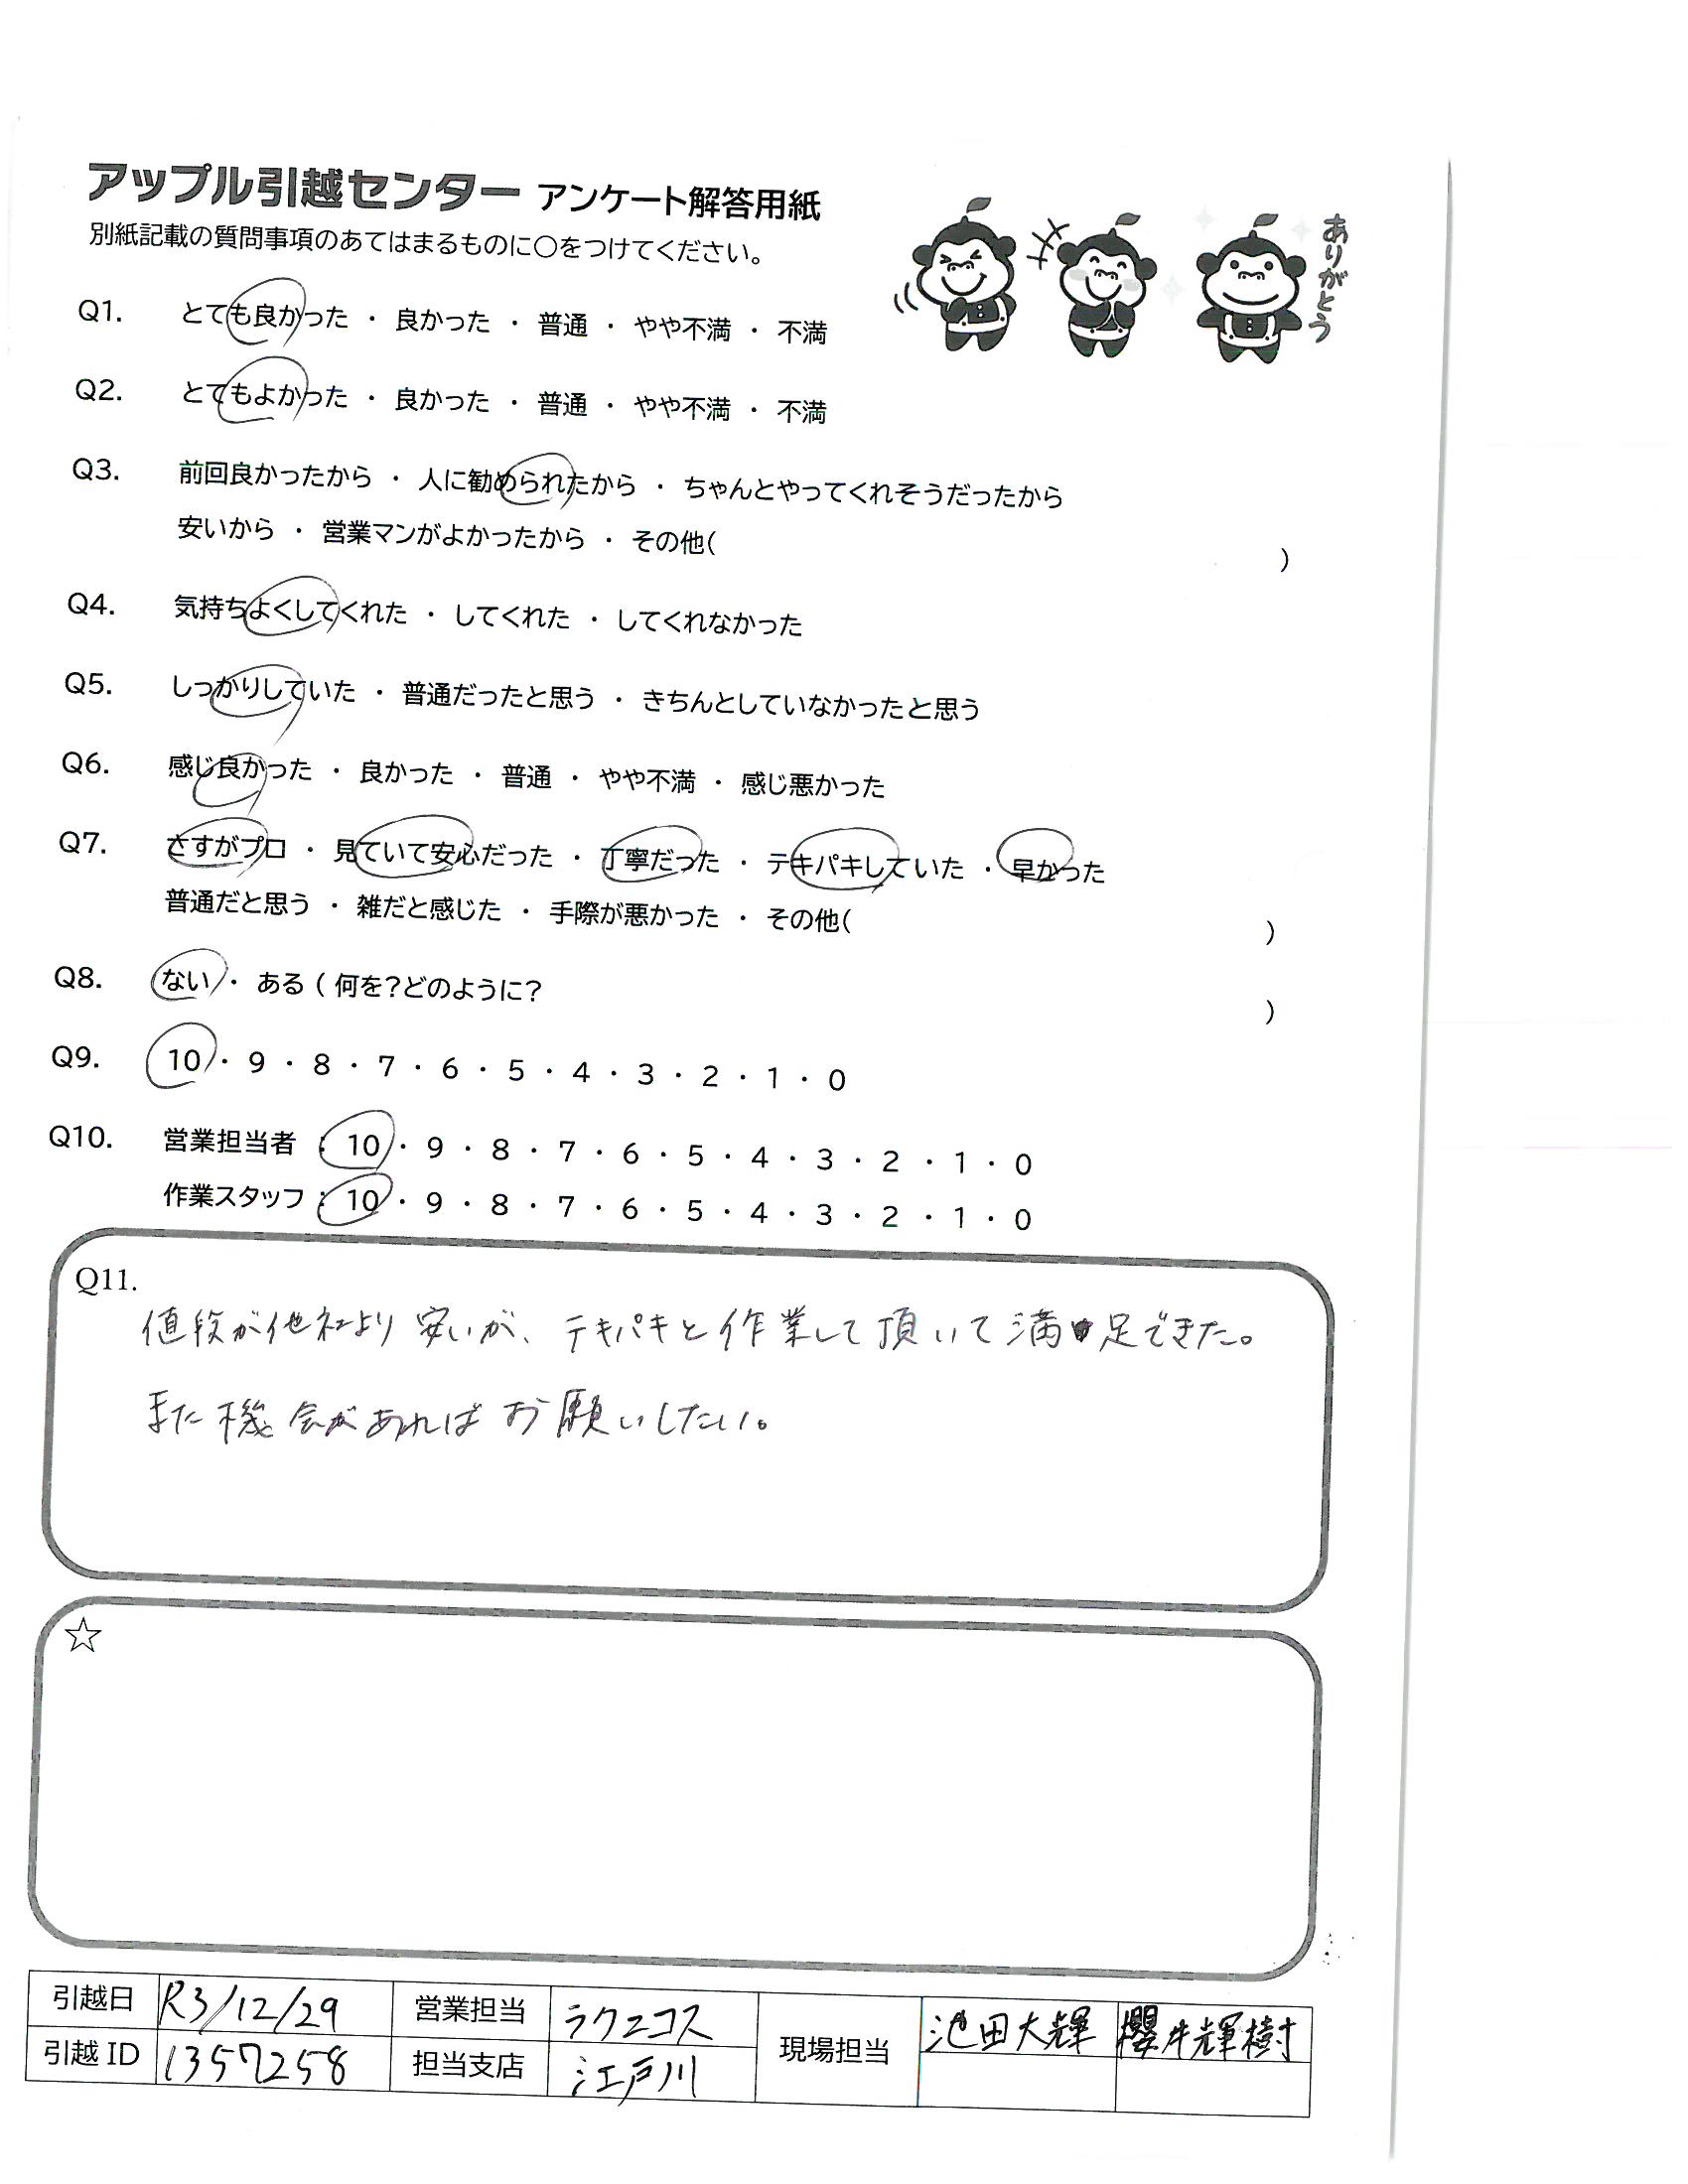 アップル引越センター アンケート解答用紙
別紙記載の質問事項のあてはまるものに〇をつけてください。
ありがとう
Q1. とても良かった ・ 良かった ・ 普通 ・ やや不満 ・ 不満
Q2. とてもよかった ・ 良かった ・ 普通 ・ やや不満 ・ 不満
Q3. 前回良かったから ・ 人に勧められたから ・ ちゃんとやってくれそうだったから
安いから ・ 営業マンがよかったから ・ その他( )
Q4. 気持ちよくしてくれた ・ してくれた ・ してくれなかった
Q5. しっかりしていた ・ 普通だったと思う ・ きちんとしていなかったと思う
Q6. 感じ良かった ・ 良かった ・ 普通 ・ やや不満 ・ 感じ悪かった
Q7. さすがプロ ・ 見ていて安心だった ・ 丁寧だった ・ テキパキしていた ・ 早かった
普通だと思う ・ 雑だと感じた ・ 手際が悪かった ・ その他( )
Q8. ない ・ ある ( 何を?どのように? )
Q9. 10 ・ 9 ・ 8 ・ 7 ・ 6 ・ 5 ・ 4 ・ 3 ・ 2 ・ 1 ・ 0
Q10. 営業担当者 : 10 ・ 9 ・ 8 ・ 7 ・ 6 ・ 5 ・ 4 ・ 3 ・ 2 ・ 1 ・ 0
作業スタッフ : 10 ・ 9 ・ 8 ・ 7 ・ 6 ・ 5 ・ 4 ・ 3 ・ 2 ・ 1 ・ 0
Q11.
値段が他社より安いが、テキパキと作業して頂いて満足できた。
また機会があればお願いしたい。
☆
引越日 R3/12/29 営業担当 ラクニコス 現場担当 池田大輝 櫻井輝樹
引越ID 1357258 担当支店 江戸川